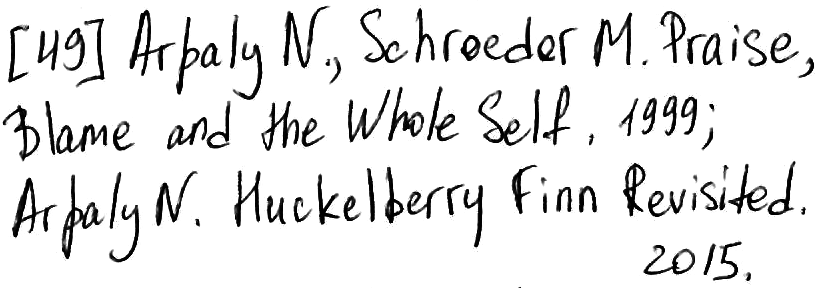 [49] Arpaly N., Schroeder M. Praise,
Blame and the Whole Self, 1999;
Arpaly N. Huckelberry Finn Revisited.
2015.